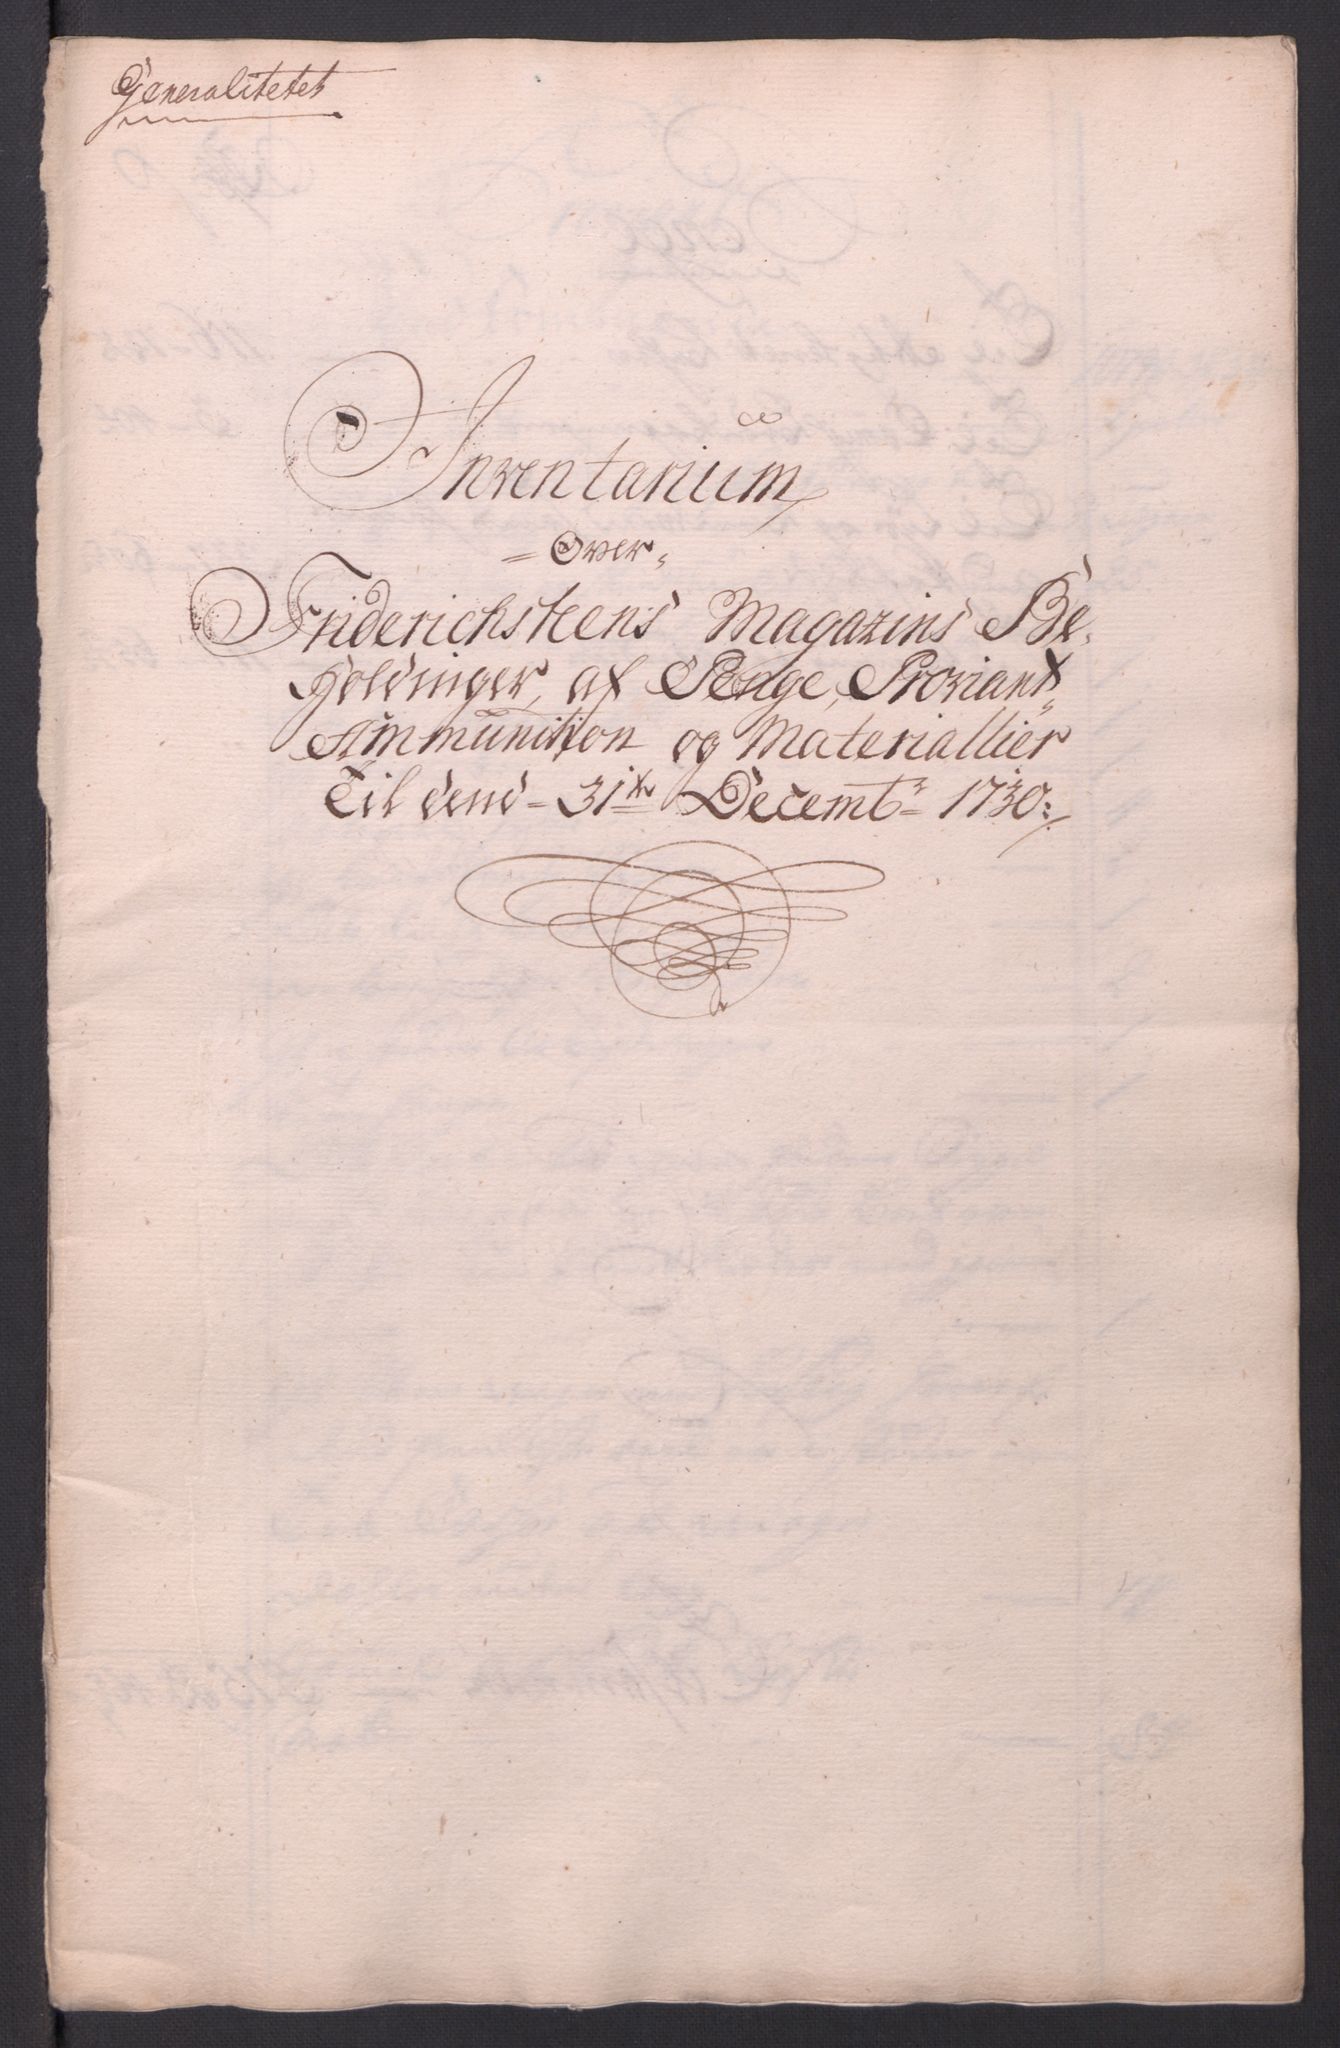 Generalitetet
Inventarium
= Over =
Friderichsteens Magazins Be-
holdninger, af Penge, Proviant
Ammunition og Materiallier
Til dend = 31te Decembr: 1730: